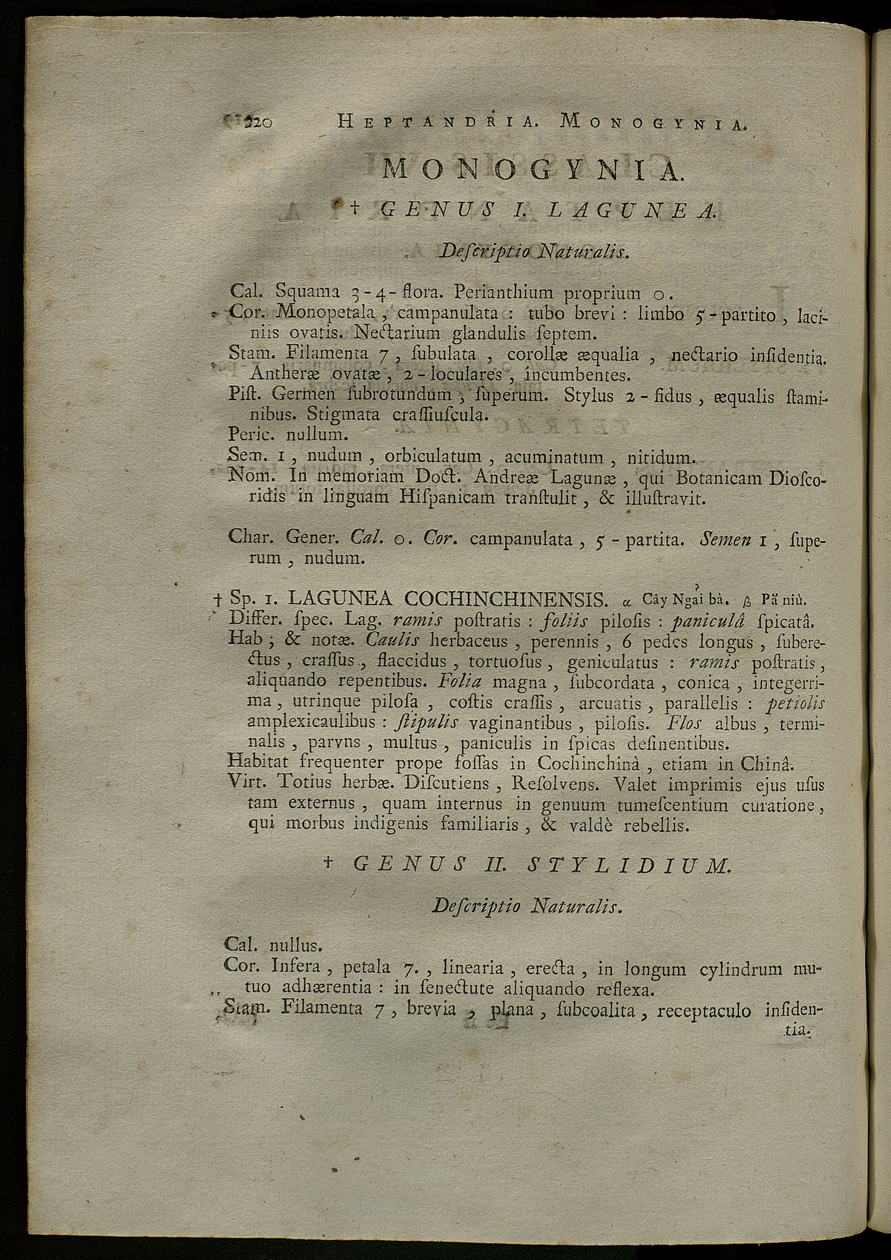 220 HEPTANDRIA. MONOGYNIA.
MONOGYNIA.
† GENUS I. LAGUNEA.
Deſcriptio Naturalis.
Cal. Squama 3-4-flora. Perianthium proprium 0.
Cor. Monopetala, campanulata : tubo brevi : limbo 5-partito, laci-
niis ovatis. Nectarium glandulis ſeptem.
Stam. Filamenta 7, ſubulata, corollæ æqualia, nectario inſidentia.
Antheræ ovatæ, 2-loculares, incumbentes.
Piſt. Germen ſubrotundum, ſuperum. Stylus 2-fidus, æqualis ſtami-
nibus. Stigmata craſſiuſcula.
Peric. nullum.
Sem. 1, nudum, orbiculatum, acuminatum, nitidum.
Nom. In memoriam Doct. Andreæ Lagunæ, qui Botanicam Dioſco-
ridis in linguam Hiſpanicam tranſtulit, & illuſtravit.
Char. Gener. Cal. 0. Cor. campanulata, 5-partita. Semen 1, ſupe-
rum, nudum.
† Sp. 1. LAGUNEA COCHINCHINENSIS. α Cây Ngải bà. β Pă niù.
Differ. ſpec. Lag. ramis poſtratis : foliis piloſis : paniculâ ſpicatâ.
Hab; & notæ. Caulis herbaceus, perennis, 6 pedes longus, ſubere-
ctus, craſſus, flaccidus, tortuoſus, geniculatus : ramis poſtratis,
aliquando repentibus. Folia magna, ſubcordata, conica, integerri-
ma, utrinque piloſa, coſtis craſſis, arcuatis, parallelis : petiolis
amplexicaulibus : ſtipulis vaginantibus, piloſis. Flos albus, termi-
nalis, parvns, multus, paniculis in ſpicas deſinentibus.
Habitat frequenter prope foſſas in Cochinchinâ, etiam in Chinâ.
Virt. Totius herbæ. Diſcutiens, Reſolvens. Valet imprimis ejus uſus
tam externus, quam internus in genuum tumeſcentium curatione,
qui morbus indigenis familiaris, & valdè rebellis.
† GENUS II. STYLIDIUM.
Deſcriptio Naturalis.
Cal. nullus.
Cor. Infera, petala 7., linearia, erecta, in longum cylindrum mu-
tuo adhærentia : in ſenectute aliquando reflexa.
Stam. Filamenta 7, brevia, plana, ſubcoalita, receptaculo inſiden-
tia.